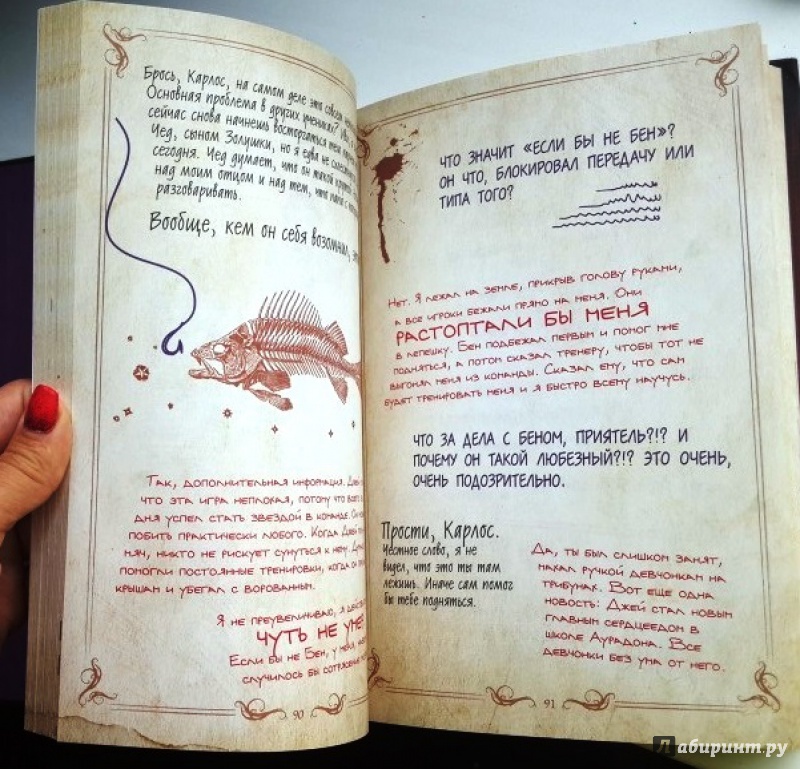 Брось, Карлос, на самом деле это совсем
Основная проблема в других учениках?
сейчас снова начнешь восторгаться тем
Чед, сыном Золушки, но я едва не
сегодня. Чед думает, что он такой крутой
над моим отцом и над тем, что папа с
разговаривать.
Вообще, кем он себя возомнил,
Так, дополнительная информация.
что эта игра неплохая, потому что
дня успел стать звездой в команде.
побить практически любого. Когда Джей
мяч, никто не рискует сунуться к нему.
помогли постоянные тренировки, когда он
крышам и убегал с ворованным.
Я не преувеличиваю, я
ЧУТЬ НЕ
Если бы не Бен, у меня
случилось бы сотрясение
90
ЧТО ЗНАЧИТ «ЕСЛИ БЫ НЕ БЕН»?
ОН ЧТО, БЛОКИРОВАЛ ПЕРЕДАЧУ ИЛИ
ТИПА ТОГО?
Нет. Я лежал на земле, прикрыв голову руками,
а все игроки бежали прямо на меня. Они
РАСТОПТАЛИ БЫ МЕНЯ
в лепешку. Бен подбежал первым и помог мне
подняться, а потом сказал тренеру, чтобы тот не
выгонял меня из команды. Сказал ему, что сам
будет тренировать меня и я быстро всему научусь.
ЧТО ЗА ДЕЛА С БЕНОМ, ПРИЯТЕЛЬ?!? И
ПОЧЕМУ ОН ТАКОЙ ЛЮБЕЗНЫЙ?!? ЭТО ОЧЕНЬ,
ОЧЕНЬ ПОДОЗРИТЕЛЬНО.
Прости, Карлос.
Честное слово, я не
видел, что это ты там
лежишь. Иначе сам помог
бы тебе подняться.
Да, ты был слишком занят,
махал ручкой девчонкам на
трибунах. Вот еще одна
новость: Джей стал новым
главным сердцеедом в
школе Аурадона. Все
девчонки без ума от него.
91
Лабиринт.ру